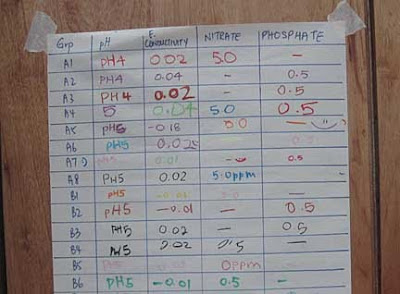 Grp pH E. CONDUCTIVITY NITRATE PHOSPHATE
A1 pH4 0.02 5.0 —
A2 pH4 0.04 - 0.5
A3 pH4 0.02 - 0.5
A4 5 0.04 5.0 0.5
A5 pH5 -0.18 5.0 —
A6 pH5 0.025
A7:) pH5 0.01 - 0.5
A8 pH5 0.02 5.0ppm -
B1 pH5 -0.01 —
B2 pH5 -0.01 — 0.5
B3 pH5 0.02 — 0.5
B4 pH5 0.02 0.5 —
B5 0ppm —
B6 pH5 -0.01 0.5 -